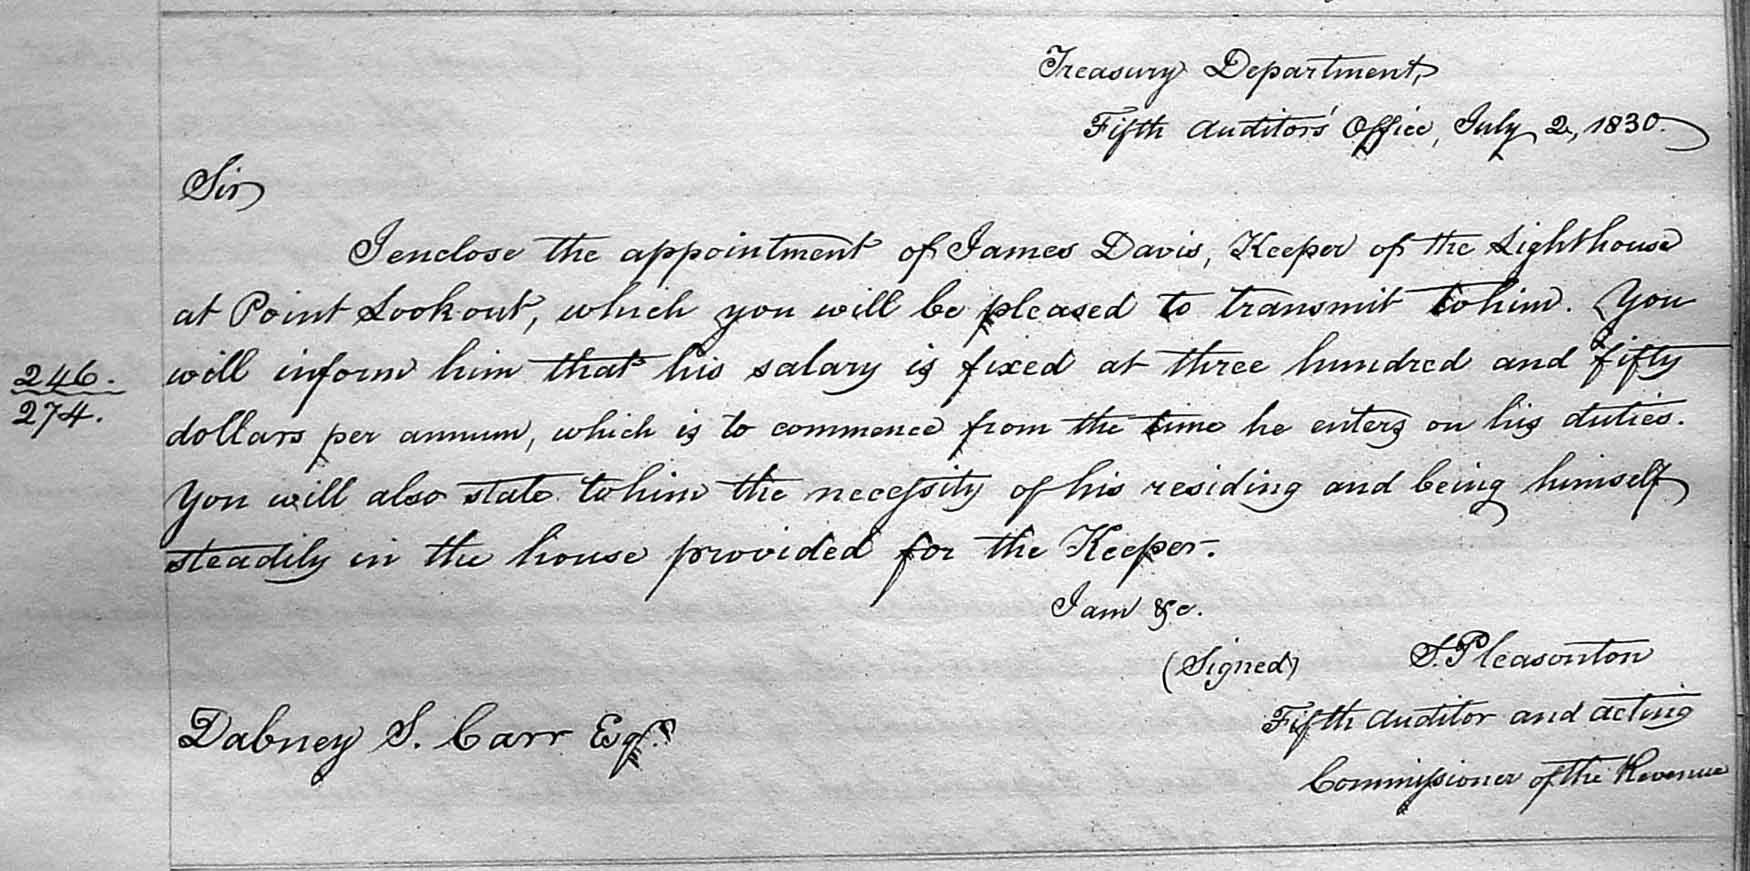 Treasury Department,
Fifth Auditors' Office, July 2, 1830.
Sir
I enclose the appointment of James Davis, Keeper of the Lighthouse
at Point Lookout, which you will be pleased to transmit to him. You
will inform him that his salary is fixed at three hundred and fifty
246.
274.
dollars per annum, which is to commence from the time he enters on his duties.
You will also state to him the necessity of his residing and being himself
steadily in the house provided for the Keeper.
I am &c.
(Signed) S. Pleasonton
Dabney S. Carr Esqr.
Fifth Auditor and acting
Commissioner of the Revenue